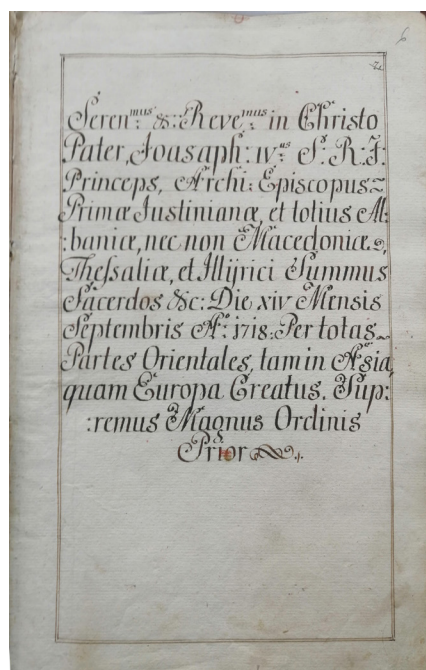 6
2.
Seren^mus &: Reve^mus in Christo
Pater, Joasaph: IV^us S: R: I:
Princeps, Archi: Episcopus~
Primæ Justinianæ, et totius Al:
:baniæ, nec non Macedoniæ,
Theſsaliæ, et Illÿrici Summus
Sacerdos &c: Die xiv Mensis
Septembris A°: 1718: Per totas~
Partes Orientales, tam in Asia,
quam Europa Creatus. Sup:
:remus Magnus Ordinis
Prior